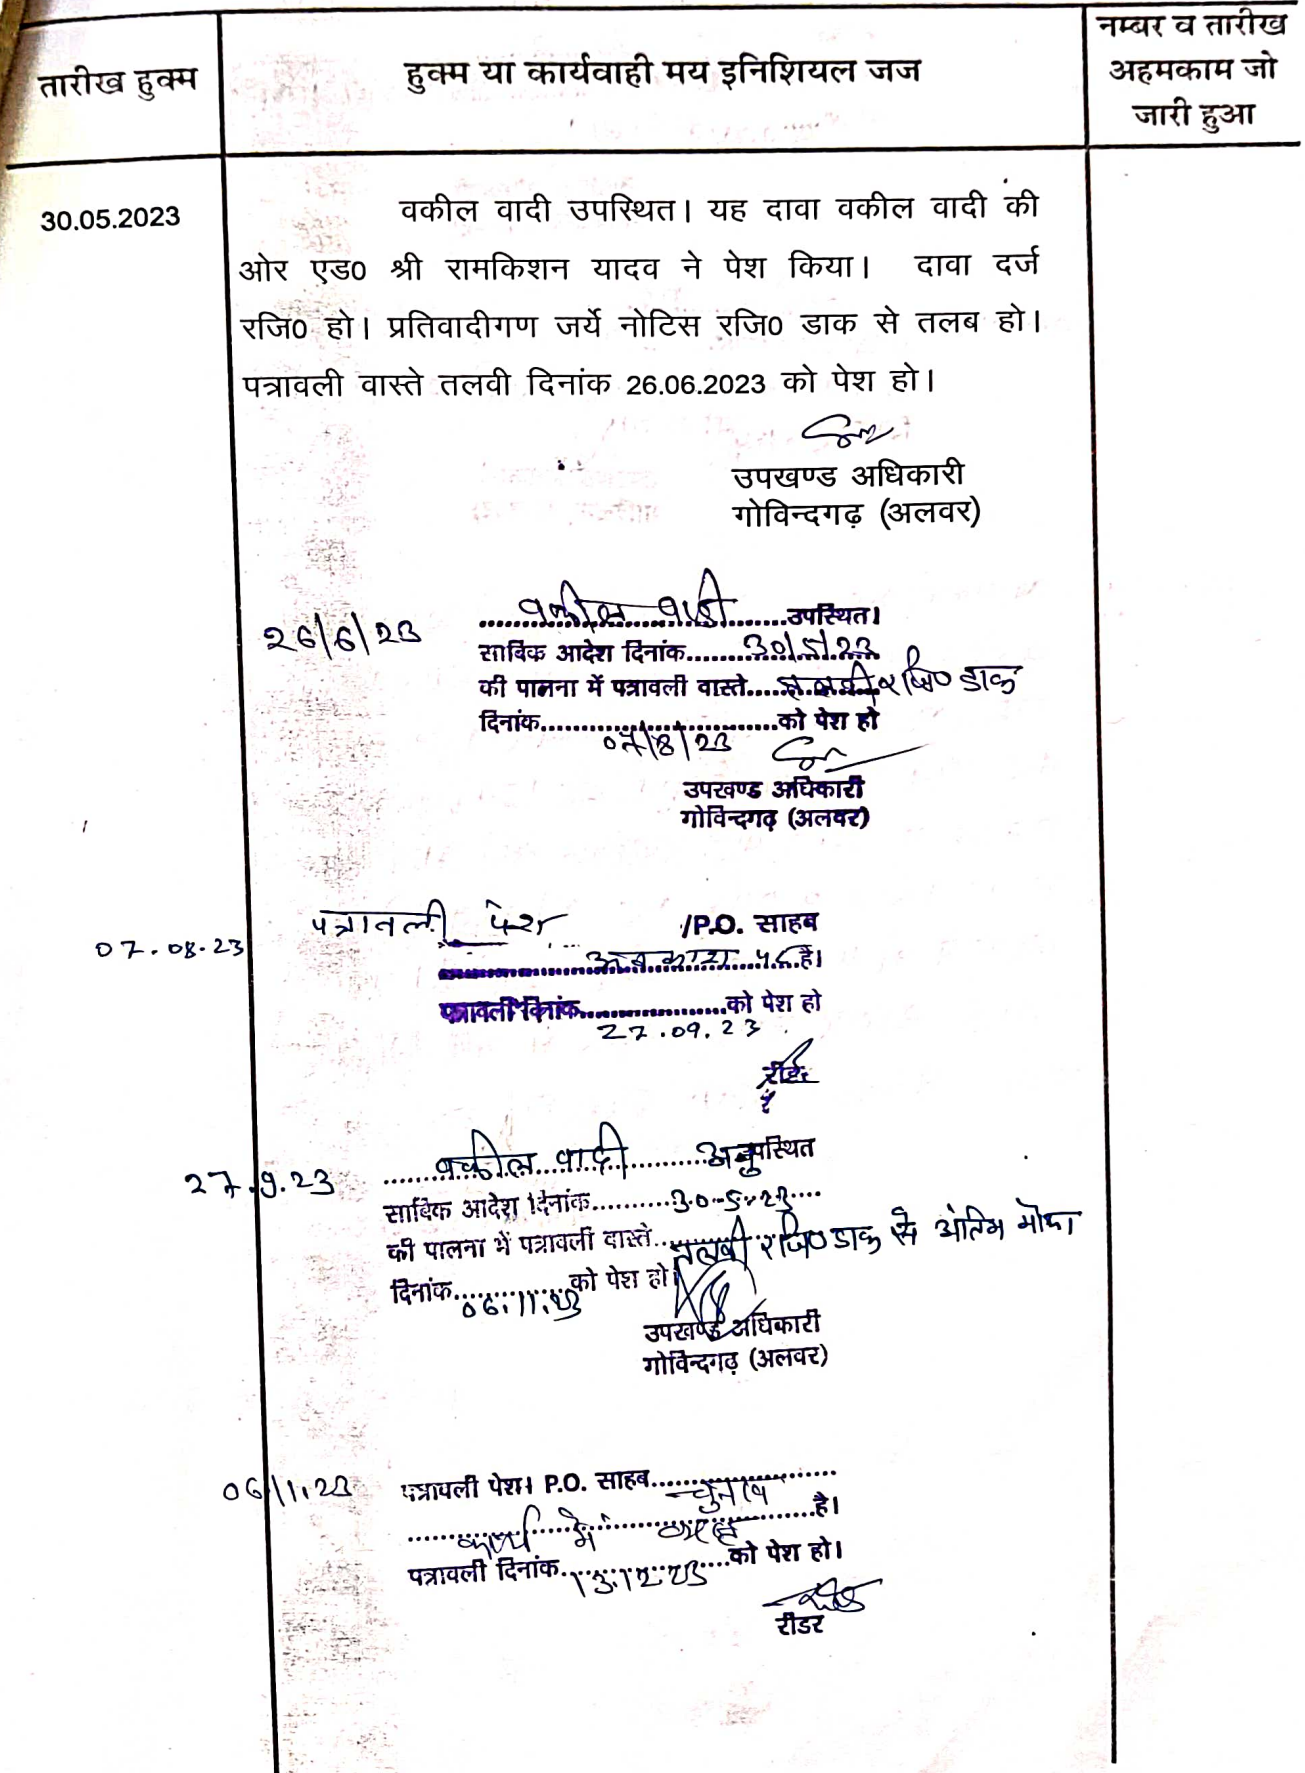 तारीख हुक्म
हुक्म या कार्यवाही मय इनिशियल जज
नम्बर व तारीख
अहमकाम जो
जारी हुआ
30.05.2023
वकील वादी उपस्थित। यह दावा वकील वादी की
ओर एड0 श्री रामकिशन यादव ने पेश किया। दावा दर्ज
रजि0 हो। प्रतिवादीगण जर्ये नोटिस रजि0 डाक से तलब हो।
पत्रावली वास्ते तलवी दिनांक 26.06.2023 को पेश हो।
उपखण्ड अधिकारी
गोविन्दगढ़ (अलवर)
26/6/23
वकील वादी उपस्थित।
साबिक आदेश दिनांक 30/5/23
की पालना में पत्रावली वास्ते तलवी रजि0 डाक
दिनांक 07/8/23 को पेश हो
उपखण्ड अधिकारी
गोविन्दगढ़ (अलवर)
07.08.23
पत्रावली पेश /P.O. साहब
अवकाश पर है।
पत्रावली दिनांक 27.09.23 को पेश हो
रीडर
27.9.23
वकील वादी अनुपस्थित
साबिक आदेश दिनांक 30-5-23
की पालना में पत्रावली वास्ते तलवी रजि0 डाक से अंतिम मौका
दिनांक 06.11.23 को पेश हो।
उपखण्ड अधिकारी
गोविन्दगढ़ (अलवर)
06/11.23
पत्रावली पेश। P.O. साहब चुनाव
कार्य में व्यस्त है।
पत्रावली दिनांक 13.12.23 को पेश हो।
रीडर